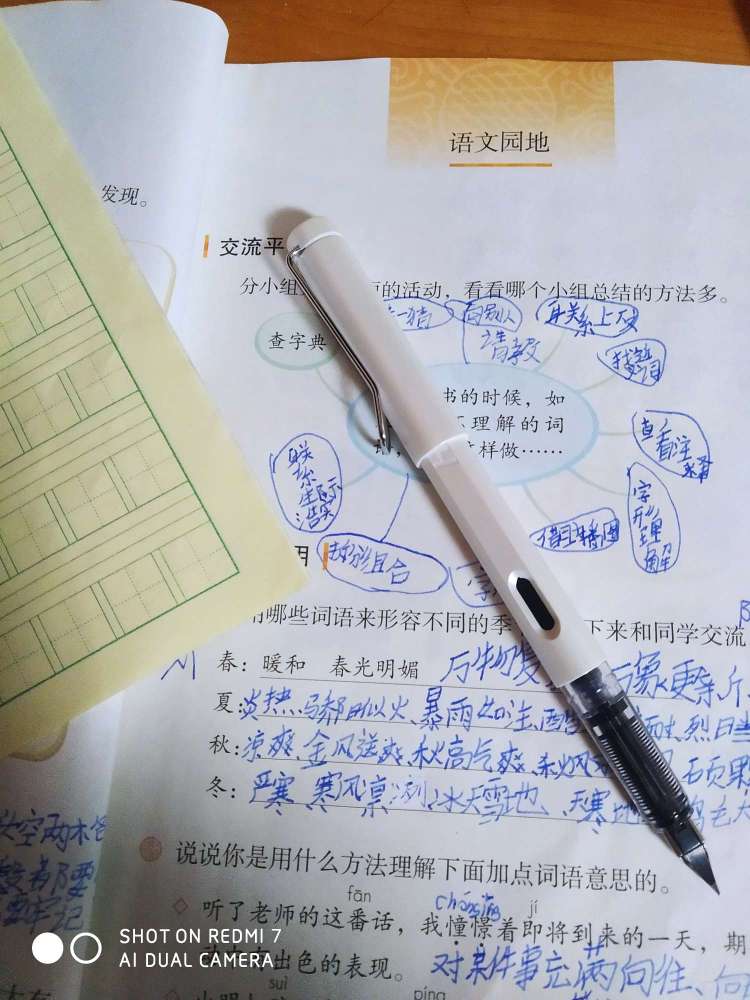 语文园地
发现。
交流平
分小组 的活动，看看哪个小组总结的方法多。
一猜 向别人请教 联系上下文
查字典
找近义词
书的时候，如
理解的词
这样做……
查看注释
联系生活实际
字形理解
借助插图
拆分组合
用
哪些词语来形容不同的季 下来和同学交流
春：暖和 春光明媚 万物复 万象更新
夏：炎热、骄阳似火、暴雨如注、酷 烈日当
秋：凉爽、金风送爽、秋高气爽、秋风 硕果
冬：严寒、寒风凛冽、冰天雪地、天寒地 毛大
说说你是用什么方法理解下面加点词语意思的。
fān chōng jǐng jí
听了老师的这番话，我憧憬着即将到来的一天，期
出色的表现。 对某件事充满向往、向
suì píng
头空两格
要牢记
SHOT ON REDMI 7
AI DUAL CAMERA